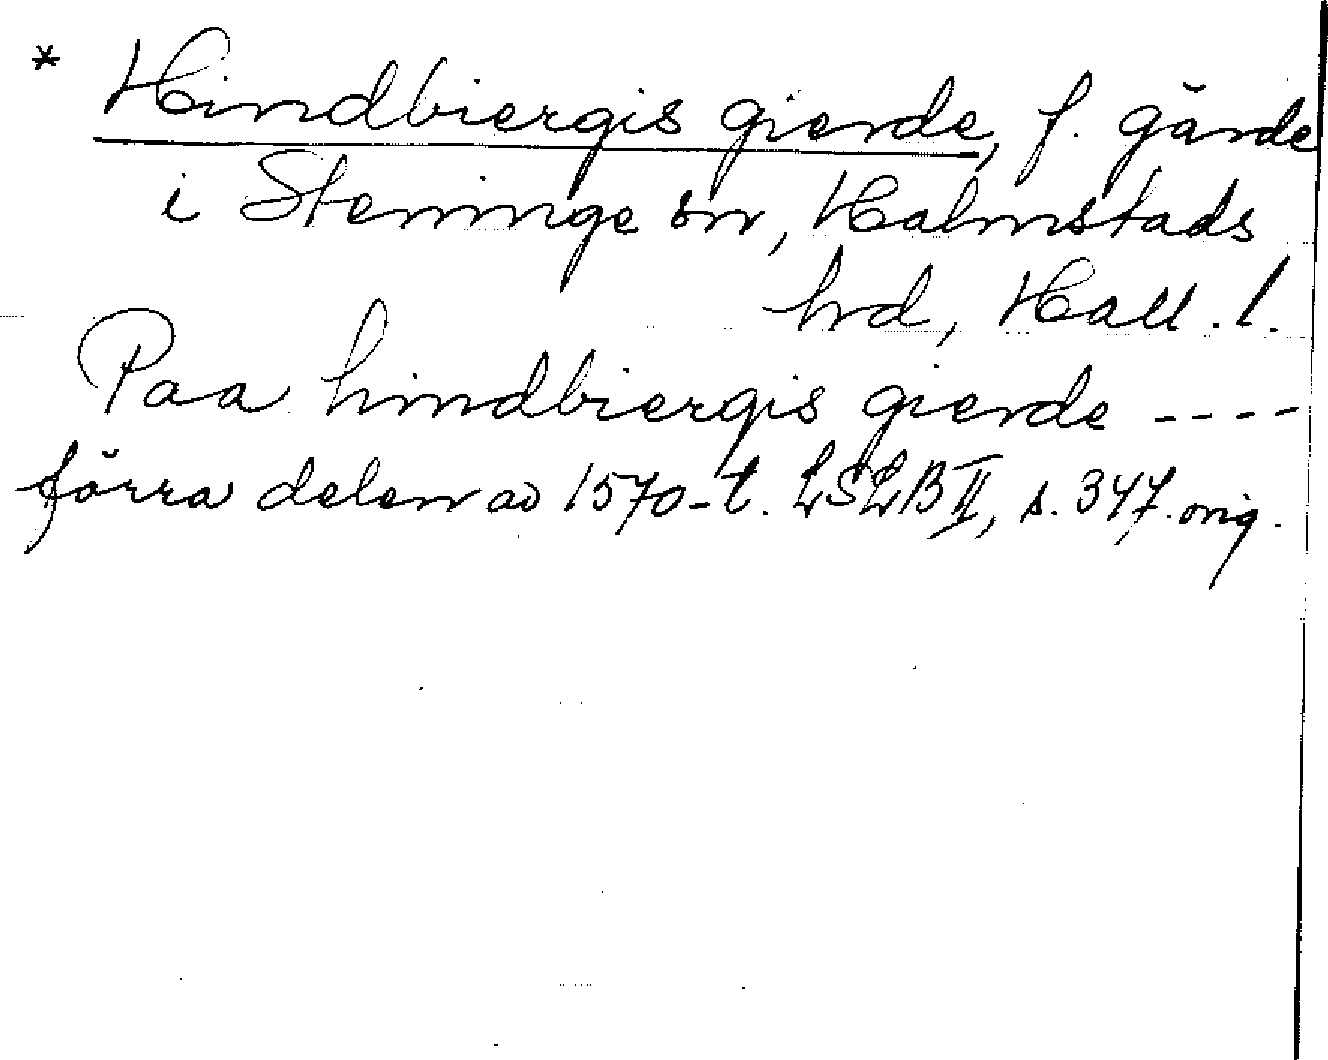 * Hindbiergis gierde, f. gärde
i Steninge sn, Halmstads
hd, Hall. l.
Paa hindbiergis gierde ----
förra delen av 1570-t. LSLB II, s. 347. orig.